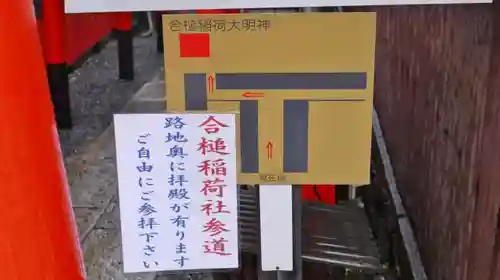 合槌稲荷大明神
現在地
合槌稲荷社参道
路地奥に拝殿が有ります
ご自由にご参拝下さい